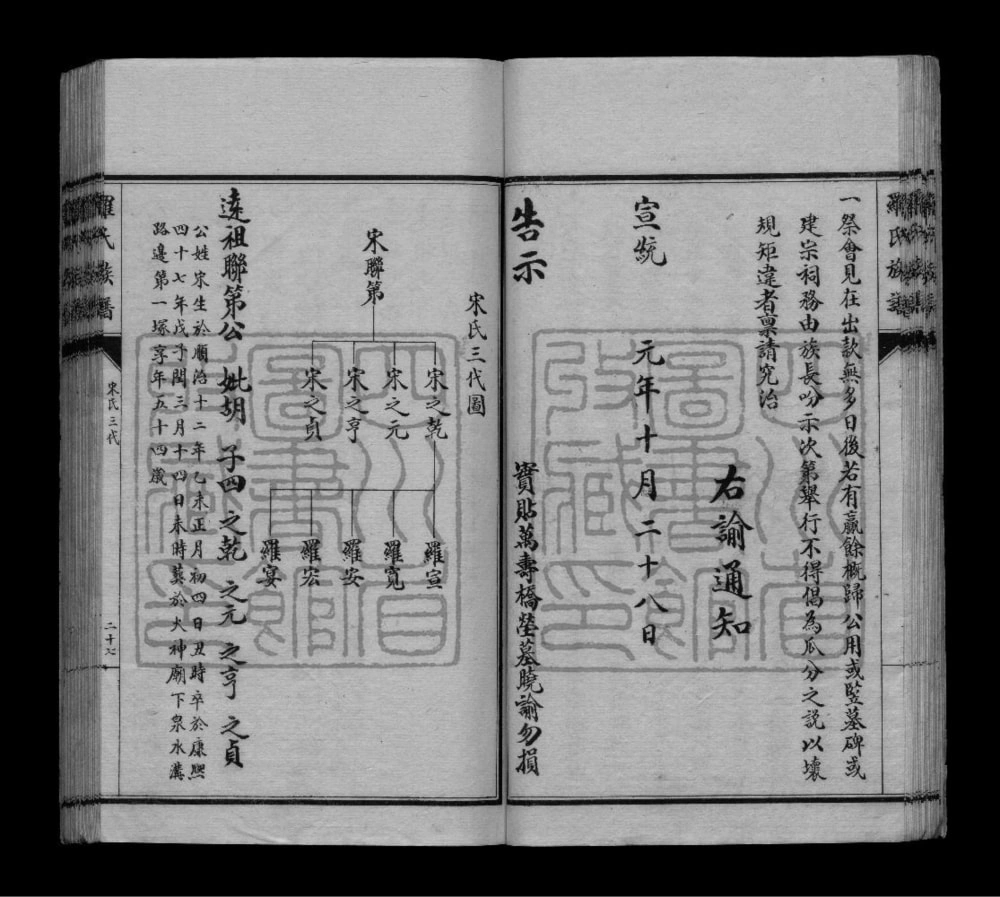 羅氏族譜
一祭會見在出款無多日後若有贏餘概歸公用或竪墓碑或
建宗祠務由族長吩示次第舉行不得倡為瓜分之説以壞
規矩違者禀請究治
右諭通知
宣統 元年十月二十八日
告示 實貼萬壽橋塋墓曉諭勿損
宋氏三代圖
宋聯第
宋之乾
宋之元
宋之亨
宋之貞
羅宣
羅寬
羅安
羅宏
羅宴
遠祖聯第公 妣胡 子四 之乾 之元 之亨 之貞
公姓宋生於順治十二年乙未正月初四日丑時卒於康熙
四十七年戊子閏三月十四日未時葬於火神廟下泉水溝
路邊第一塚享年五十四歲
羅氏族譜
宋氏三代
二十七
四川省圖書館收藏印
四川省圖書館收藏印